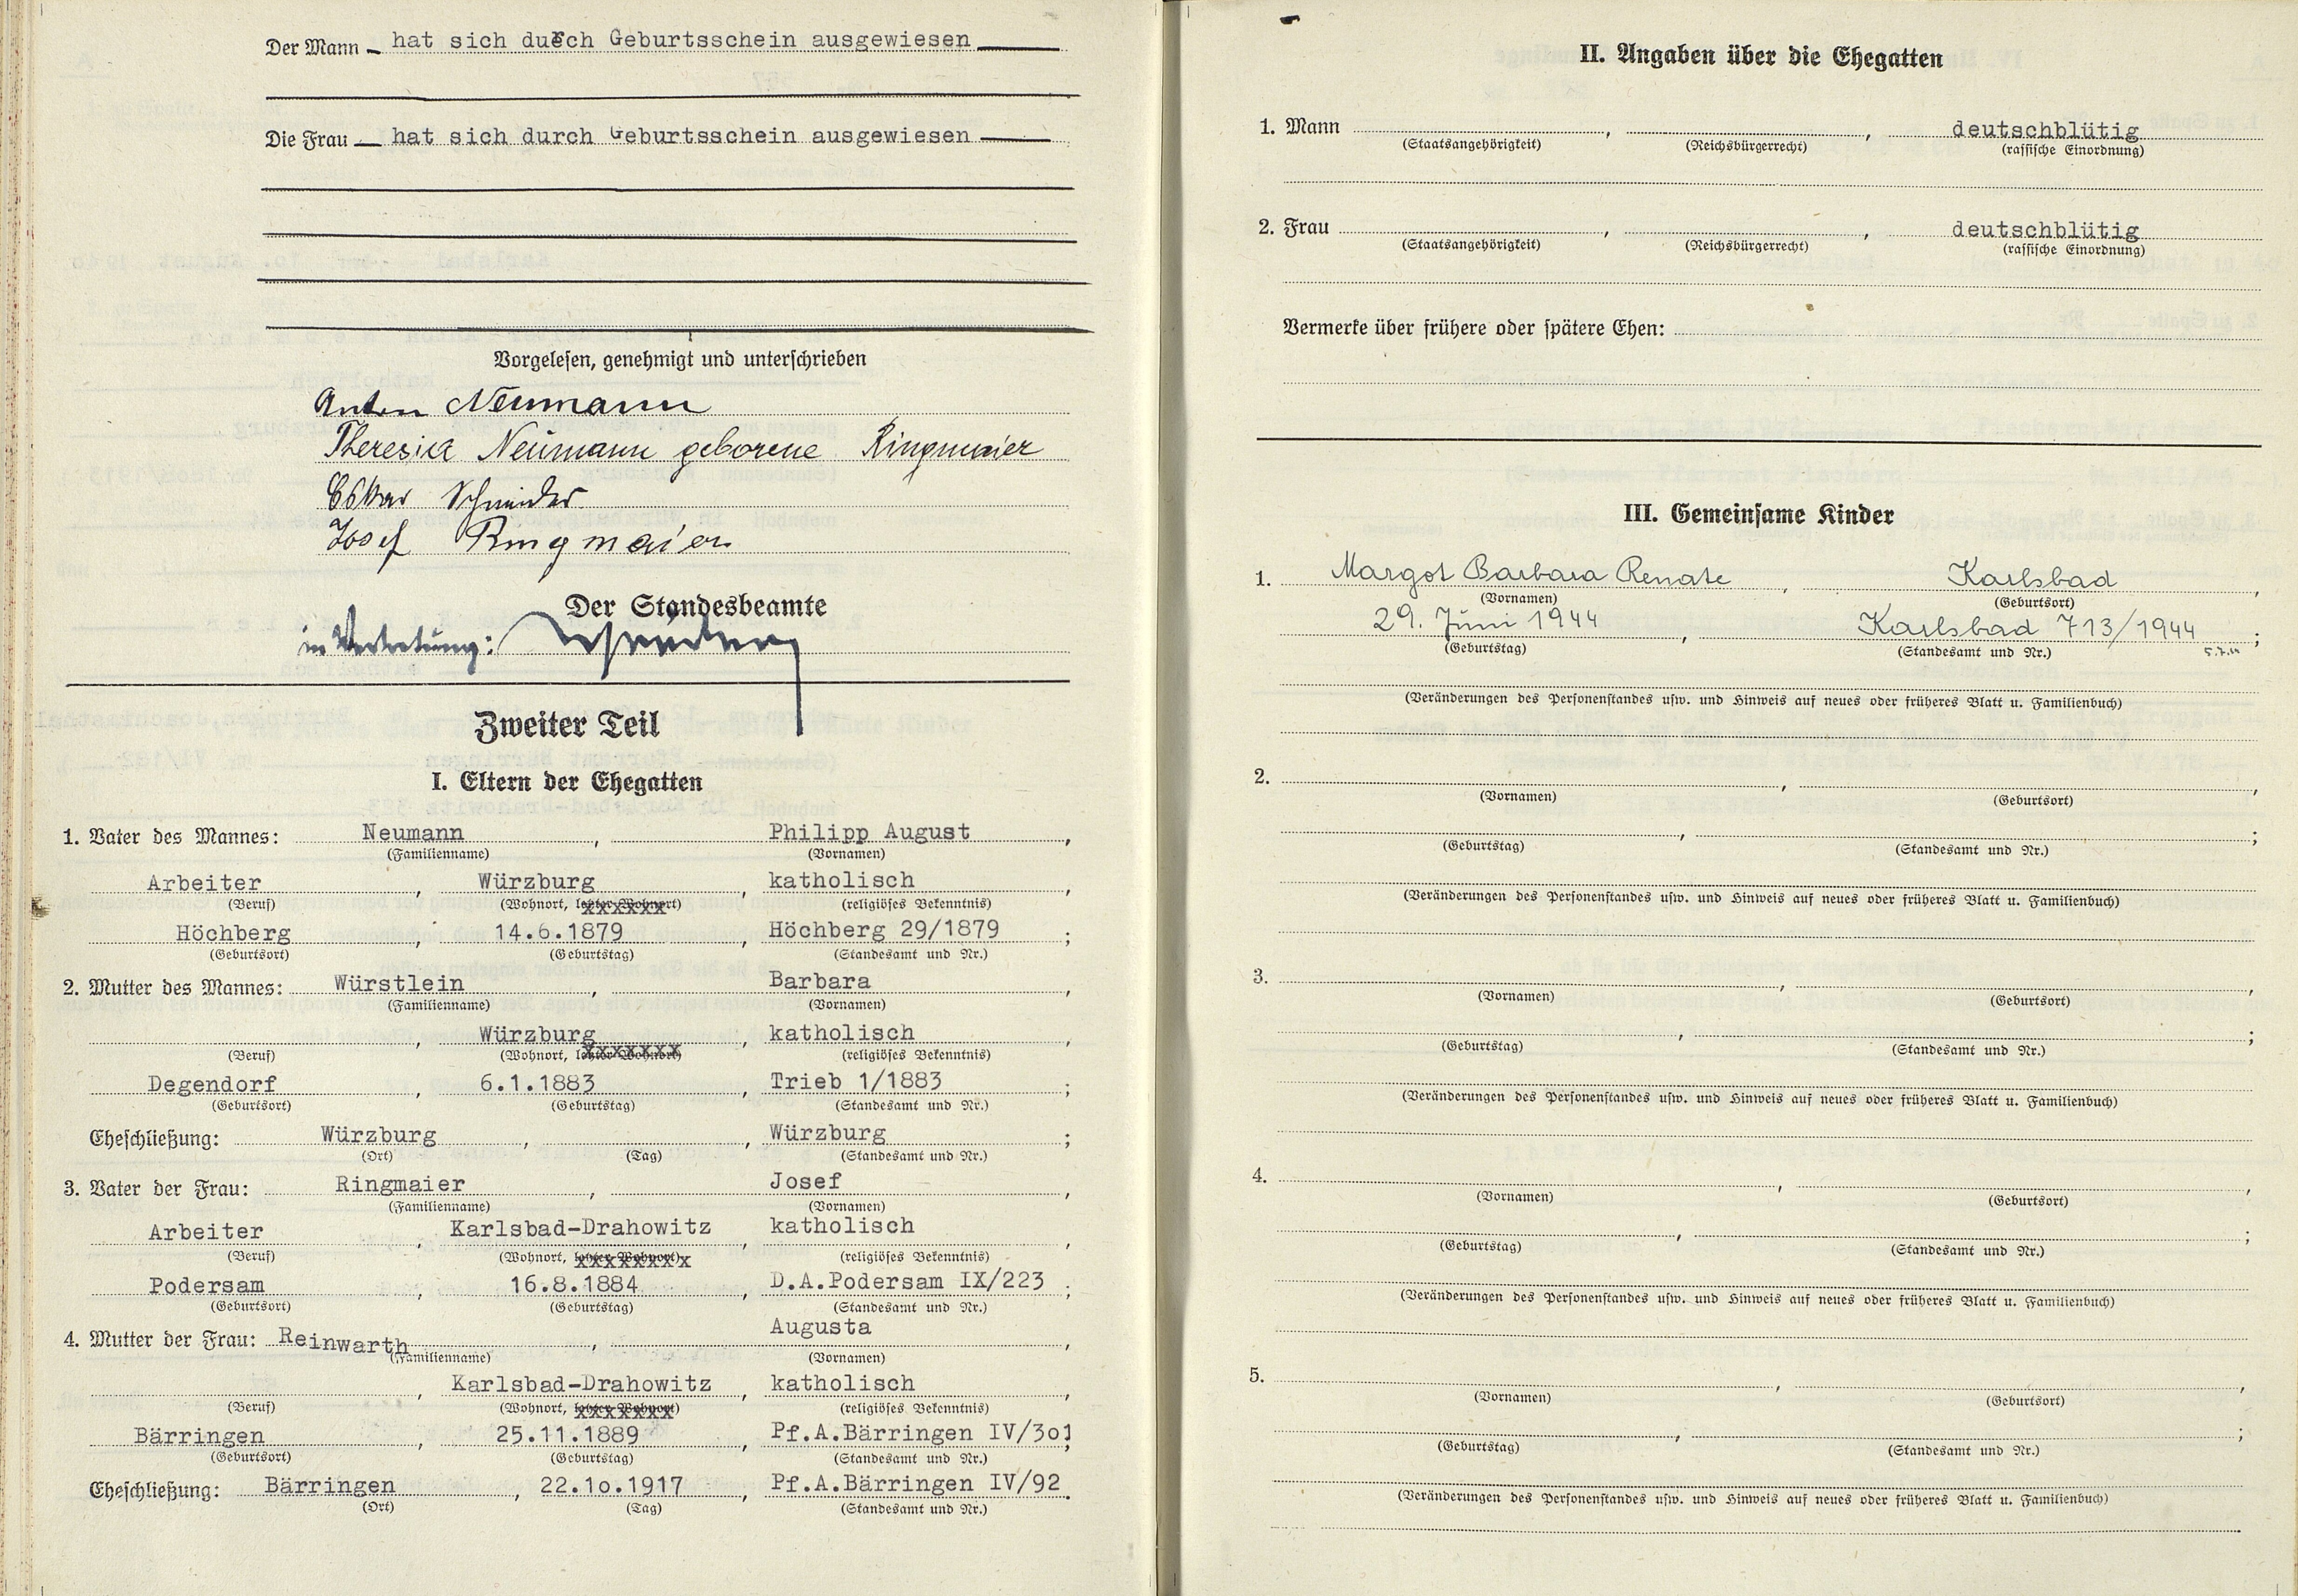 Der Mann hat sich durch Geburtsschein ausgewiesen
Die Frau hat sich durch Geburtsschein ausgewiesen
Vorgelesen, genehmigt und unterschrieben
Anton Neumann
Theresia Neumann geborene Ringmaier
Oskar Schneider
Josef Ringmaier
Der Standesbeamte
in Vertretung:
Zweiter Teil
I. Eltern der Ehegatten
1. Vater des Mannes: Neumann, Philipp August,
(Familienname) (Vornamen)
Arbeiter, Würzburg, katholisch,
(Beruf) (Wohnort, letzter Wohnort) (religiöses Bekenntnis)
Höchberg, 14.6.1879, Höchberg 29/1879;
(Geburtsort) (Geburtstag) (Standesamt und Nr.)
2. Mutter des Mannes: Würstlein, Barbara,
(Familienname) (Vornamen)
, Würzburg, katholisch,
(Beruf) (Wohnort, letzter Wohnort) (religiöses Bekenntnis)
Degendorf, 6.1.1883, Trieb 1/1883;
(Geburtsort) (Geburtstag) (Standesamt und Nr.)
Eheschließung: Würzburg, , Würzburg;
(Ort) (Tag) (Standesamt und Nr.)
3. Vater der Frau: Ringmaier, Josef,
(Familienname) (Vornamen)
Arbeiter, Karlsbad-Drahowitz, katholisch,
(Beruf) (Wohnort, letzter Wohnort) (religiöses Bekenntnis)
Podersam, 16.8.1884, D.A.Podersam IX/223;
(Geburtsort) (Geburtstag) (Standesamt und Nr.)
4. Mutter der Frau: Reinwarth, Augusta,
(Familienname) (Vornamen)
, Karlsbad-Drahowitz, katholisch,
(Beruf) (Wohnort, letzter Wohnort) (religiöses Bekenntnis)
Bärringen, 25.11.1889, Pf.A.Bärringen IV/3o1;
(Geburtsort) (Geburtstag) (Standesamt und Nr.)
Eheschließung: Bärringen, 22.1o.1917, Pf.A.Bärringen IV/92.
(Ort) (Tag) (Standesamt und Nr.)
II. Angaben über die Ehegatten
1. Mann , , deutschblütig
(Staatsangehörigkeit) (Reichsbürgerrecht) (rassische Einordnung)
2. Frau , , deutschblütig
(Staatsangehörigkeit) (Reichsbürgerrecht) (rassische Einordnung)
Vermerke über frühere oder spätere Ehen:
III. Gemeinsame Kinder
1. Margot Barbara Renate, Karlsbad,
(Vornamen) (Geburtsort)
29. Juni 1944, Karlsbad 713/1944;
(Geburtstag) (Standesamt und Nr.) 5.7.44
(Veränderungen des Personenstandes usw. und Hinweis auf neues oder früheres Blatt u. Familienbuch)
2. , ,
(Vornamen) (Geburtsort)
, ;
(Geburtstag) (Standesamt und Nr.)
(Veränderungen des Personenstandes usw. und Hinweis auf neues oder früheres Blatt u. Familienbuch)
3. , ,
(Vornamen) (Geburtsort)
, ;
(Geburtstag) (Standesamt und Nr.)
(Veränderungen des Personenstandes usw. und Hinweis auf neues oder früheres Blatt u. Familienbuch)
4. , ,
(Vornamen) (Geburtsort)
, ;
(Geburtstag) (Standesamt und Nr.)
(Veränderungen des Personenstandes usw. und Hinweis auf neues oder früheres Blatt u. Familienbuch)
5. , ,
(Vornamen) (Geburtsort)
, ;
(Geburtstag) (Standesamt und Nr.)
(Veränderungen des Personenstandes usw. und Hinweis auf neues oder früheres Blatt u. Familienbuch)